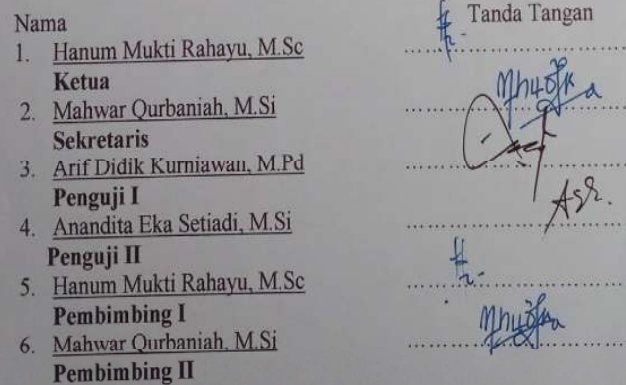 Nama Tanda Tangan
1. Hanum Mukti Rahayu, M.Sc
Ketua
2. Mahwar Qurbaniah, M.Si
Sekretaris
3. Arif Didik Kurniawan, M.Pd
Penguji I
4. Anandita Eka Setiadi, M.Si
Penguji II
5. Hanum Mukti Rahayu, M.Sc
Pembimbing I
6. Mahwar Qurbaniah, M.Si
Pembimbing II